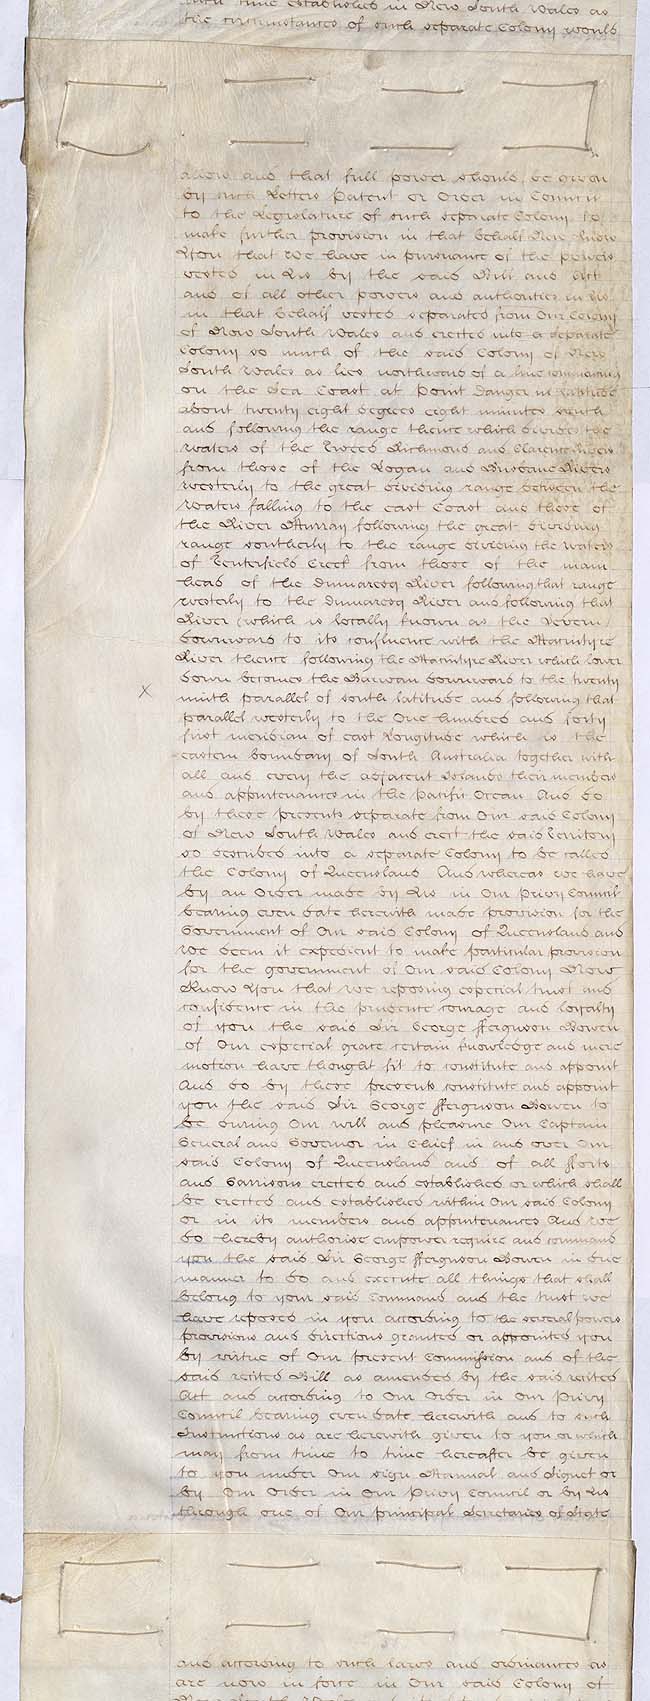 time established in New South Wales as
the circumstances of such separate Colony would
allow and that full power should be given
by such Letters Patent or Order in Council
to the Legislature of such separate Colony to
make further provision in that behalf Now Know
You that We have in pursuance of the powers
vested in Us by the said Bill and Act
and of all other powers and authorities in Us
in that behalf vested separated from Our Colony
of New South Wales and erected into a separate
Colony so much of the said Colony of New
South Wales as lies northward of a line commencing
on the Sea Coast at Point Danger in latitude
about twenty eight degrees eight minutes south
and following the range thence which divides the
waters of the Tweed Richmond and Clarence Rivers
from those of the Logan and Brisbane Rivers
westerly to the great dividing range between the
waters falling to the east Coast and those of
the River Murray following the great dividing
range southerly to the range dividing the waters
of Tenterfield Creek from those of the main
head of the Dumaresq River following that range
westerly to the Dumaresq River and following that
River (which is locally known as the Severn)
downward to its confluence with the Macintyre
River thence following the Macintyre River which lower
down becomes the Barwan downward to the twenty
X
ninth parallel of south latitude and following that
parallel westerly to the One hundred and forty
first meridian of east Longitude which is the
eastern boundary of South Australia together with
all and every the adjacent Islands their members
and appurtenances in the Pacific Ocean And do
by these presents separate from Our said Colony
of New South Wales and erect the said Territory
so described into a separate Colony to be called
the Colony of Queensland And whereas we have
by an Order made by Us in Our Privy Council
bearing even date herewith made provision for the
Government of Our said Colony of Queensland and
We deem it expedient to make particular provision
for the government of Our said Colony Now
Know You that We reposing especial trust and
confidence in the prudence courage and loyalty
of you the said Sir George Fferguson Bowen
of Our especial grace certain knowledge and mere
motion have thought fit to constitute and appoint
And do by these presents constitute and appoint
you the said Sir George Fferguson Bowen to
be during Our will and pleasure Our Captain
General and Governor in Chief in and over Our
said Colony of Queensland and of all fforts
and Garrisons erected and established or which shall
be erected and established within Our said Colony
or in its members and appurtenances And We
do hereby authorise empower require and command
you the said Sir George Fferguson Bowen in due
manner to do and execute all things that shall
belong to your said Command and the trust we
have reposed in you according to the several powers
provisions and directions granted or appointed you
by virtue of Our present Commission and of the
said recited Bill as amended by the said recited
Act and according to Our Order in Our Privy
Council bearing even date herewith and to such
Instructions as are herewith given to you or which
may from time to time hereafter be given
to you under Our sign Manual and Signet or
by Our Order in Our Privy Council or by Us
through one of Our principal Secretaries of State
and according to such laws and ordinances as
are now in force in Our said Colony of